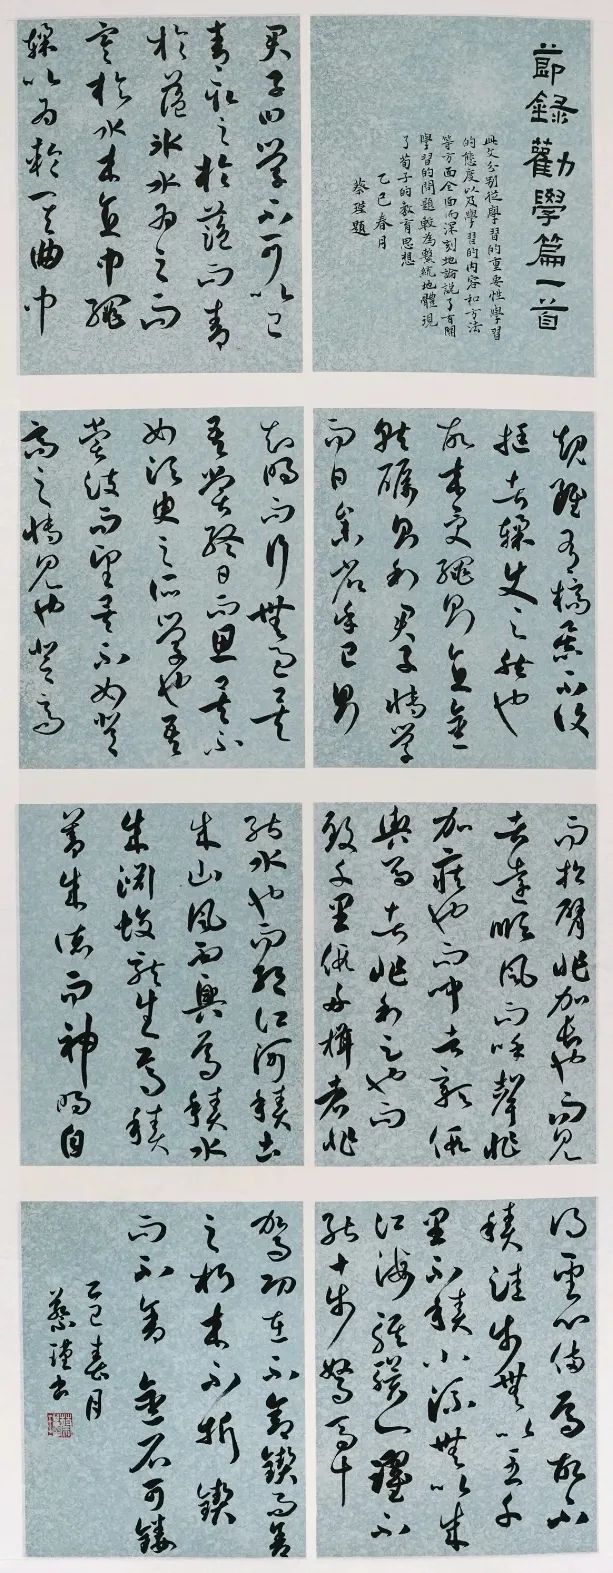 節錄勸學篇一首
此文分别從學習的重要性學習
的態度以及學習的内容和方法
等方面全面而深刻地論説了有關
學習的問題較為繫統地體現
了荀子的教育思想
乙巳春月
蔡瑾題
君子曰學不可以已
青取之於藍而青
於藍冰水為之而
寒於水木直中繩
輮以為輪其曲中
規雖有槁暴不復
挺者輮使之然也
故木受繩則直金
就礪則利君子博學
而日參省乎己則
知明而行無過矣
吾嘗終日而思矣不
如須臾之所學也吾
嘗跂而望矣不如登
高之博見也登高
而招臂非加長也而見
者遠順風而呼聲非
加疾也而聞者彰假
輿馬者非利足也而
致千里假舟楫者非
能水也而絕江河積土
成山風雨興焉積水
成淵蛟龍生焉積
善成德而神明自
得聖心備焉故不
積跬步無以至千
里不積小流無以成
江海騏驥一躍不
能十步駑馬十
駕功在不舍鍥而舍
之朽木不折鍥
而不舍金石可鏤
乙巳春月
蔡瑾書